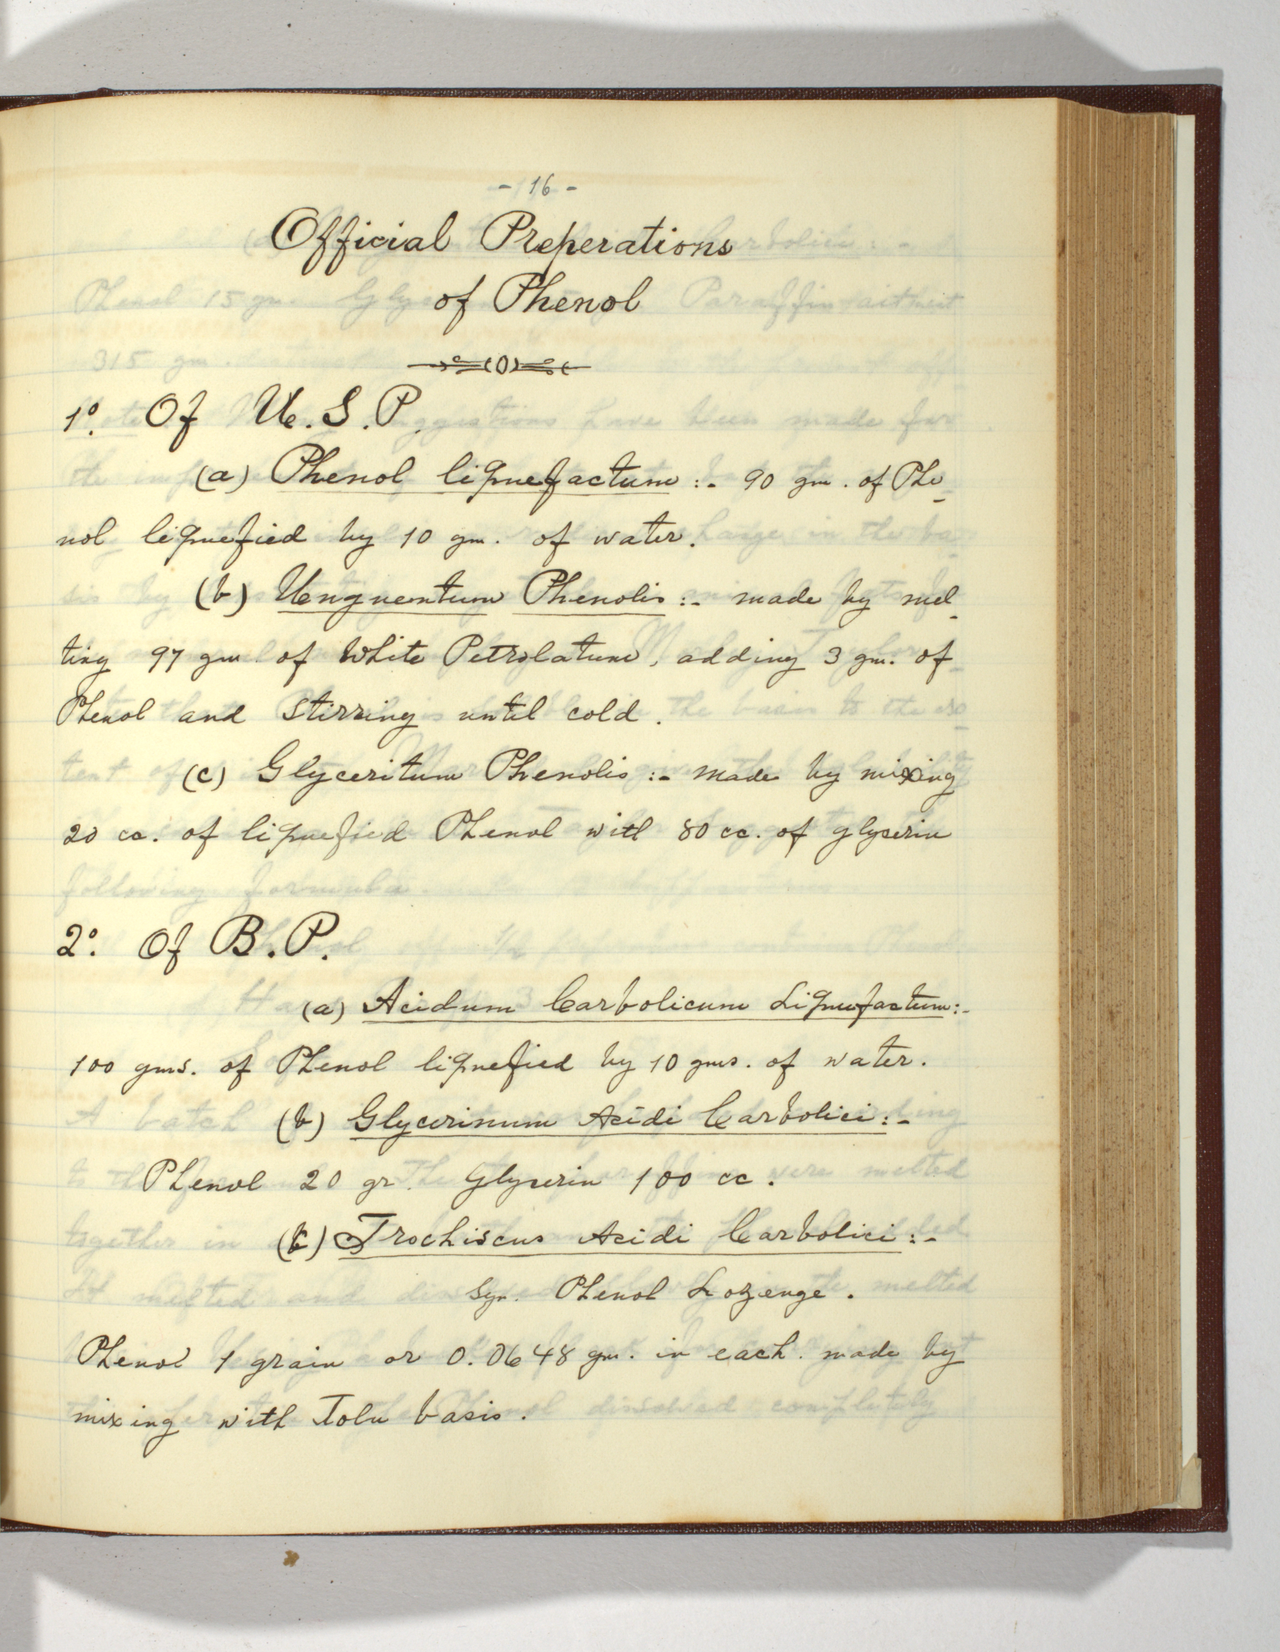 - 16 -
Official Preperations
of Phenol
1º. Of U.S.P.
(a) Phenol liquefactum :- 90 gm. of Phe-
nol liquefied by 10 gm. of water.
(b) Unguentum Phenolis :- made by mel-
ting 97 gm of White Petrolatum, adding 3 gm. of
Phenol and stirring until cold.
(c) Glyceritum Phenolis :- made by mixing
20 cc. of liquefied Phenol with 80 cc. of glyserin
2º. Of B.P.
(a) Acidum Carbolicum Liquefactum:-
100 gms. of Phenol liquefied by 10 gms. of water.
(b) Glycerinum Acidi Carbolici:-
Phenol 20 gr. Glyserin 100 cc.
(c) Trochiscus Acidi Carbolici :-
Syn. Phenol Lozenge.
Phenol 1 grain or 0.0648 gm. in each. made by
mixing with Tolu basis.